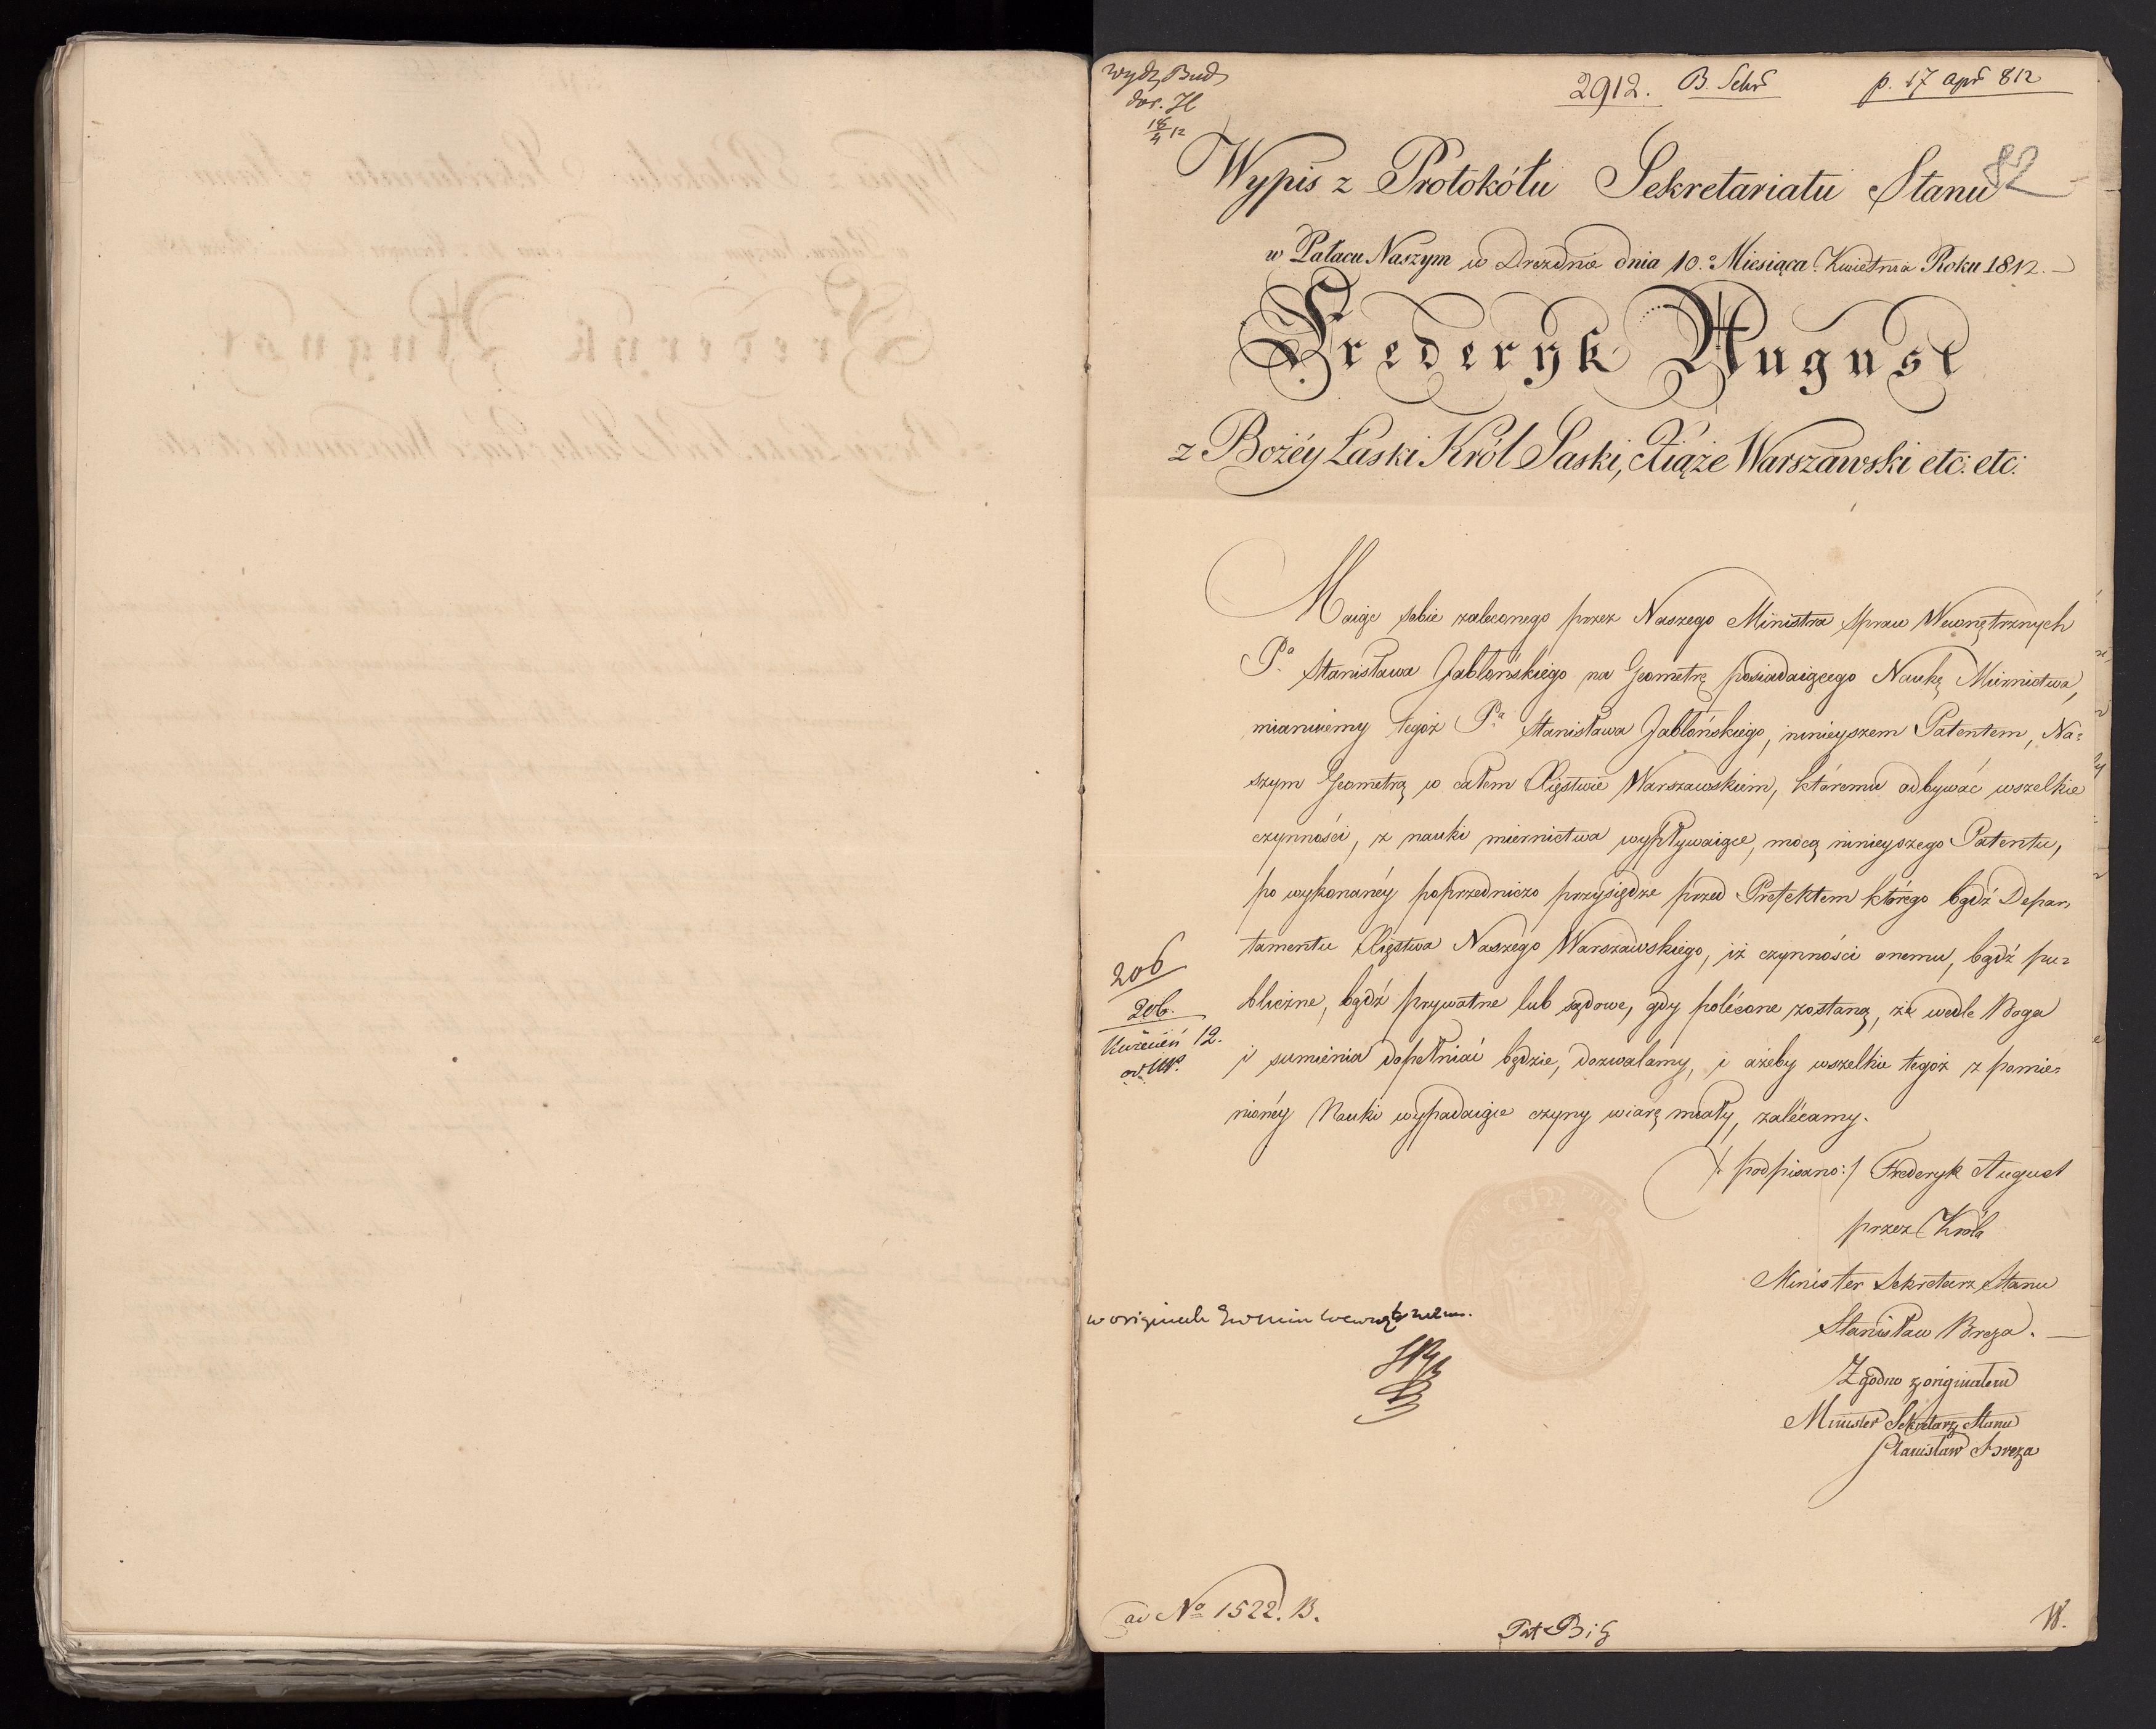 wydz. Bud.
dor. H
18/4 12
2912. B. Sekr p. 17 apr 812
82
Wypis z Protokółu Sekretariatu Stanu
w Pałacu Naszym w Dreznie dnia 10.º Miesiąca Kwietnia Roku 1812. —
Frederyk August
z Bożéy Łaski Król Saski, Xiąże Warszawski etc: etc:
Maiąc sobie zaleconego przez Naszego Ministra Spraw Wewnętrznych
P.ª Stanisława Jabłońskiego na Geometrę posiadaiącego Naukę Miernictwa,
mianuiemy tegoż P.ª Stanisława Jabłońskiego, ninieyszem Patentem, Na=
szym Geometrą w całem Xięstwie Warszawskiem, któremu odbywać wszelkie
czynności, z nauki miernictwa wypływaiące, mocą ninieyszego Patentu,
po wykonanéy poprzedniczo przysiędze przed Prefektem którego bądź Depar=
tamentu Xięstwa Naszego Warszawskiego, iż czynności onemu, bądź pu=
bliczne, bądź prywatne lub sądowe, gdy polécone zostaną, że wedle Boga
i sumienia dopełniać będzie, dozwalamy, i ażeby wszelkie tegoż z pomie=
nionéy Nauki wypadaiące czyny wiarę miały, zalécamy.
206
206.
Kwiecień 12.
/: podpisano :/ Frederyk August
przez Króla
Minister Sekretarz Stanu
Stanisław Breza. —
w originale
Zgodno z originałem
Minister Sekretarz Stanu
Stanisław Breza
ad Nº 1522. B.
Pat B i G
W.